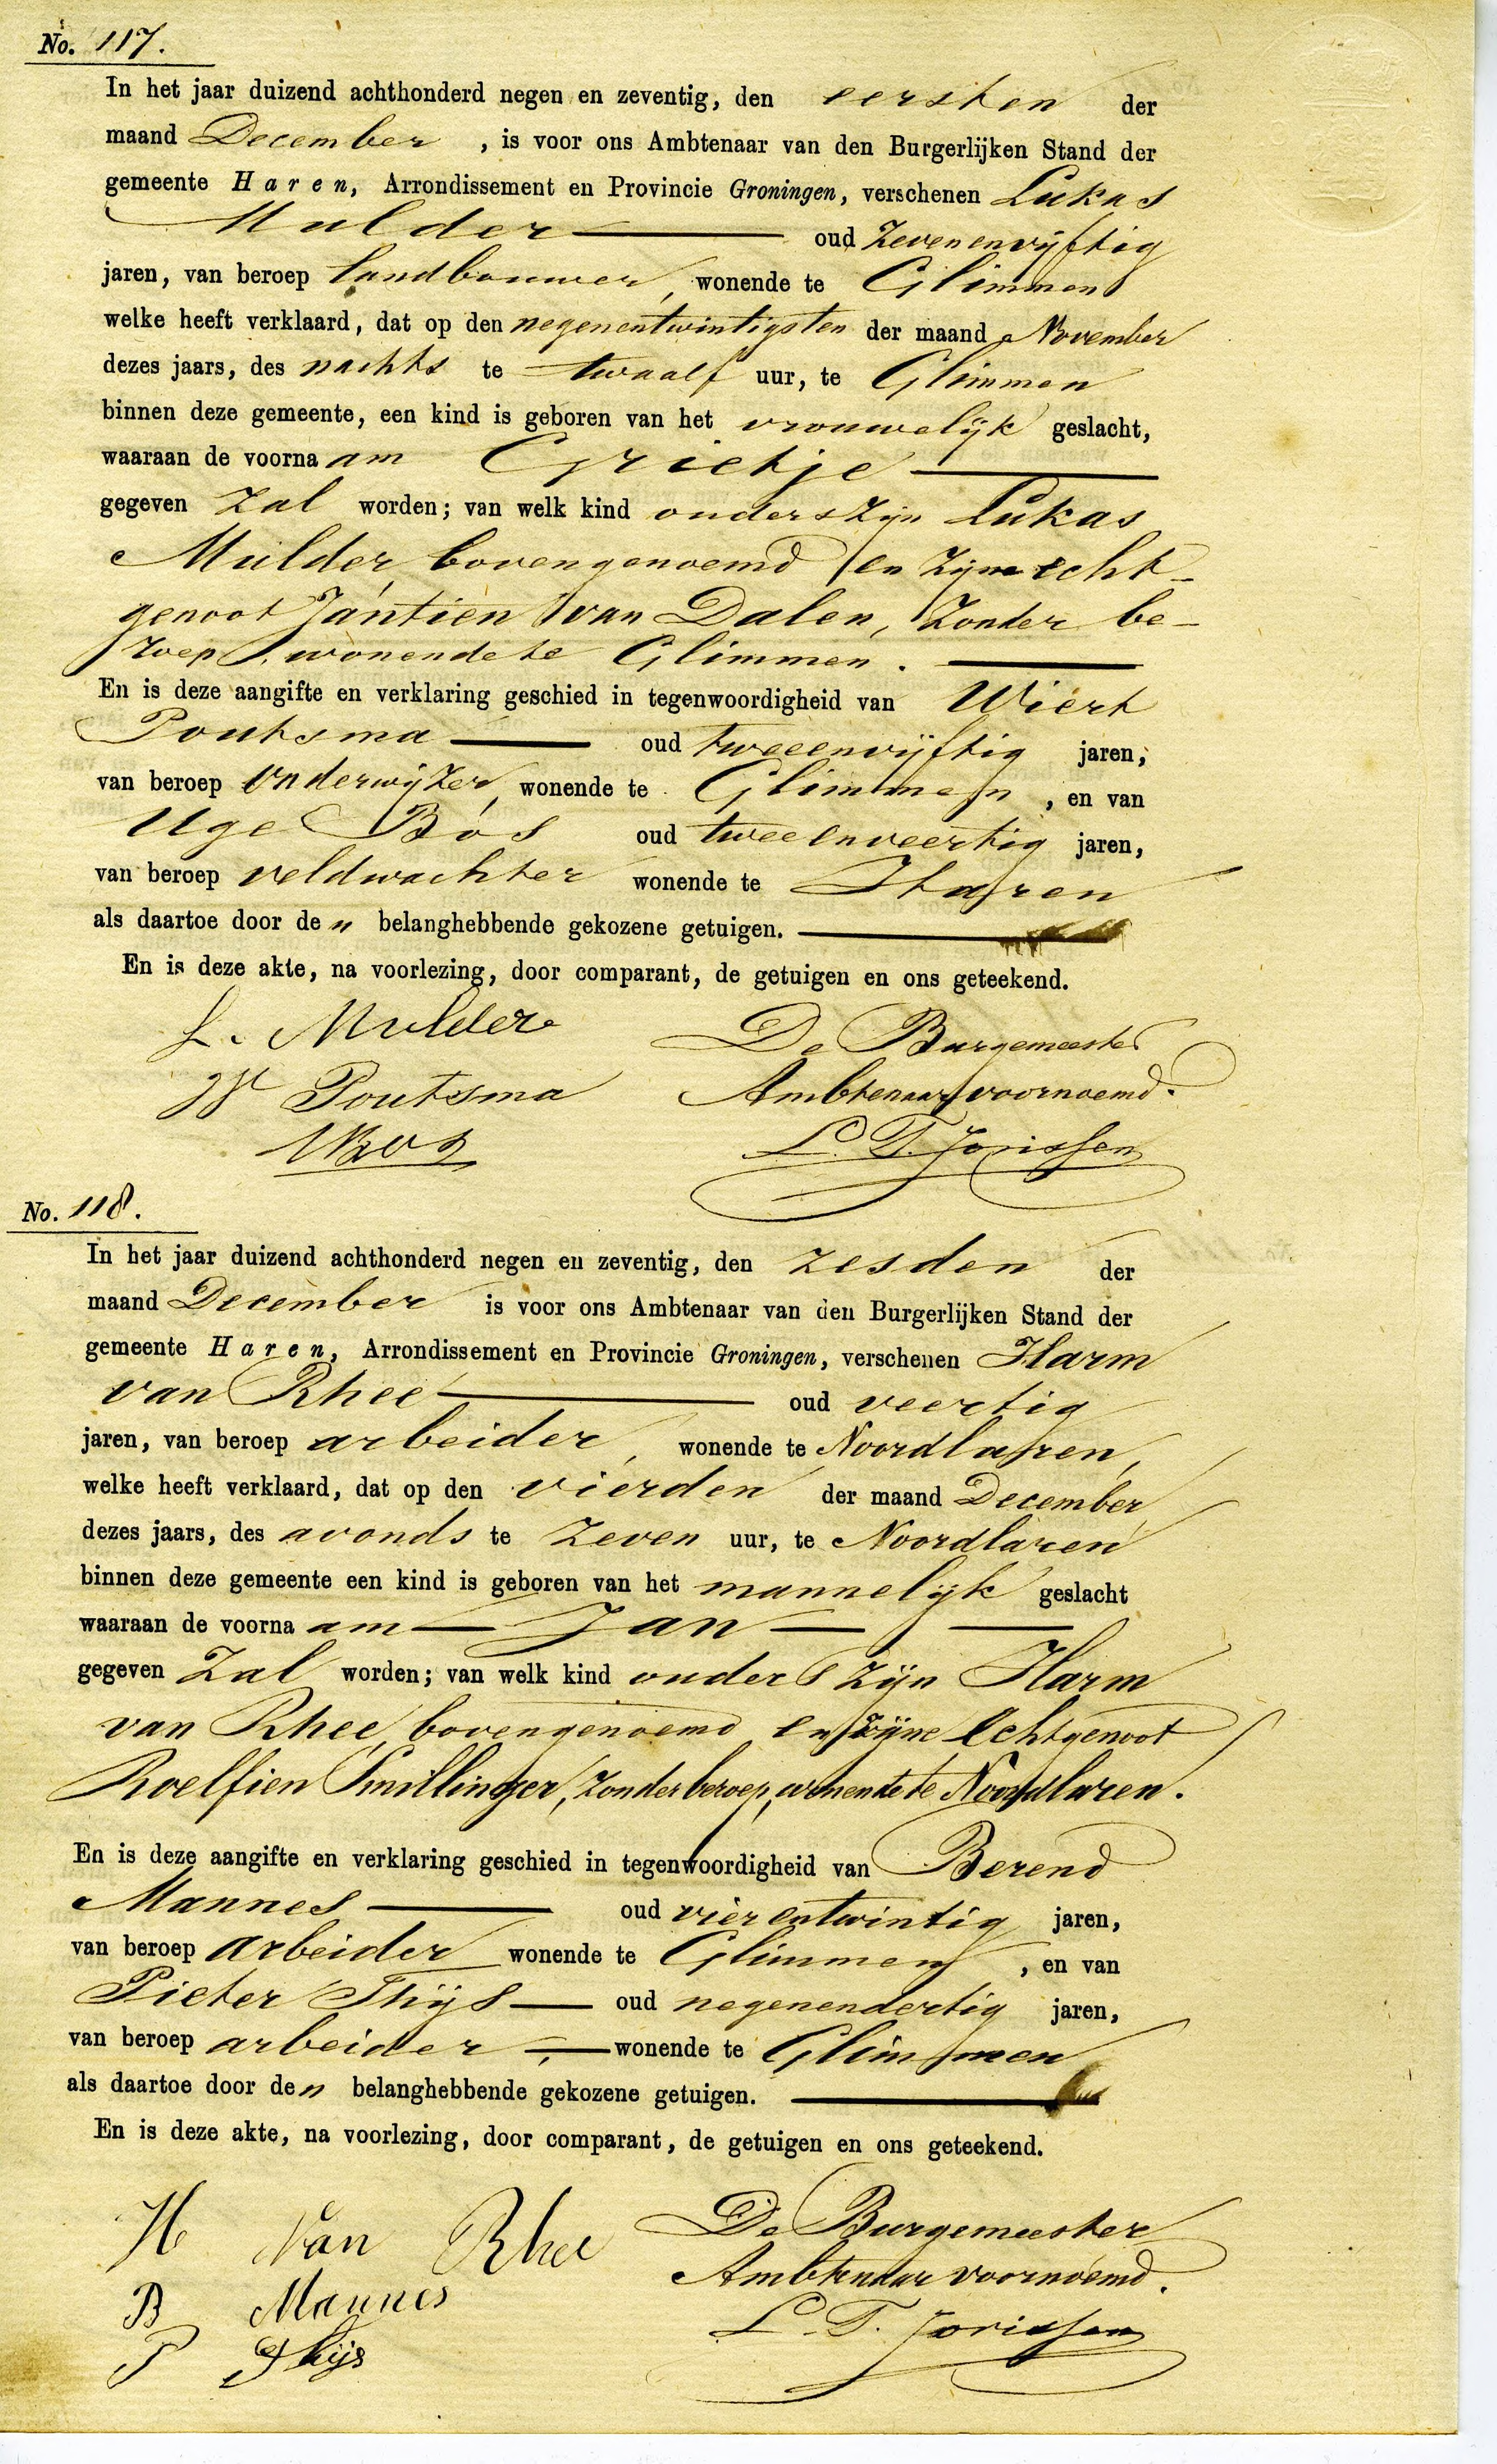 No. 117.
In het jaar duizend achthonderd negen en zeventig, den eersten der
maand December, is voor ons Ambtenaar van den Burgerlijken Stand der
gemeente Haren, Arrondissement en Provincie Groningen, verschenen Lukas
Mulder oud zevenenvijftig
jaren, van beroep landbouwer, wonende te Glimmen
welke heeft verklaard, dat op den negenentwintigsten der maand November
dezes jaars, des nachts te twaalf uur, te Glimmen
binnen deze gemeente, een kind is geboren van het vrouwelijk geslacht,
waaraan de voornaam Grietje
gegeven zal worden; van welk kind ouders zijn Lukas
Mulder, bovengenoemd en zijne echt-
genoot Jantien van Dalen, zonder be-
roep, wonende te Glimmen.
En is deze aangifte en verklaring geschied in tegenwoordigheid van Wiert
Poutsma oud tweeenvijftig jaren,
van beroep onderwijzer, wonende te Glimmen, en van
Uge Bos oud tweeenveertig jaren,
van beroep veldwachter wonende te Haren
als daartoe door de " belanghebbende gekozene getuigen.
En is deze akte, na voorlezing, door comparant, de getuigen en ons geteekend.
L. Mulder De Burgemeester
W Poutsma Ambtenaar voornoemd.
UBos L. T. Jorissen
No. 118.
In het jaar duizend achthonderd negen en zeventig, den zesden der
maand December is voor ons Ambtenaar van den Burgerlijken Stand der
gemeente Haren, Arrondissement en Provincie Groningen, verschenen Harm
van Rhee oud veertig
jaren, van beroep arbeider, wonende te Noordlaren,
welke heeft verklaard, dat op den vierden der maand December
dezes jaars, des avonds te zeven uur, te Noordlaren
binnen deze gemeente een kind is geboren van het mannelijk geslacht
waaraan de voornaam Jan
gegeven zal worden; van welk kind ouders zijn Harm
van Rhee, bovengenoemd en zijne echtgenoot
Roelfien Smillinger, zonder beroep, wonende te Noordlaren.
En is deze aangifte en verklaring geschied in tegenwoordigheid van Berend
Mannes oud vierentwintig jaren,
van beroep arbeider wonende te Glimmen, en van
Pieter Thijs oud negenendertig jaren,
van beroep arbeider, wonende te Glimmen
als daartoe door de " belanghebbende gekozene getuigen.
En is deze akte, na voorlezing, door comparant, de getuigen en ons geteekend.
H van Rhee De Burgemeester
B Mannes Ambtenaar voornoemd.
P Thijs L. T. Jorissen